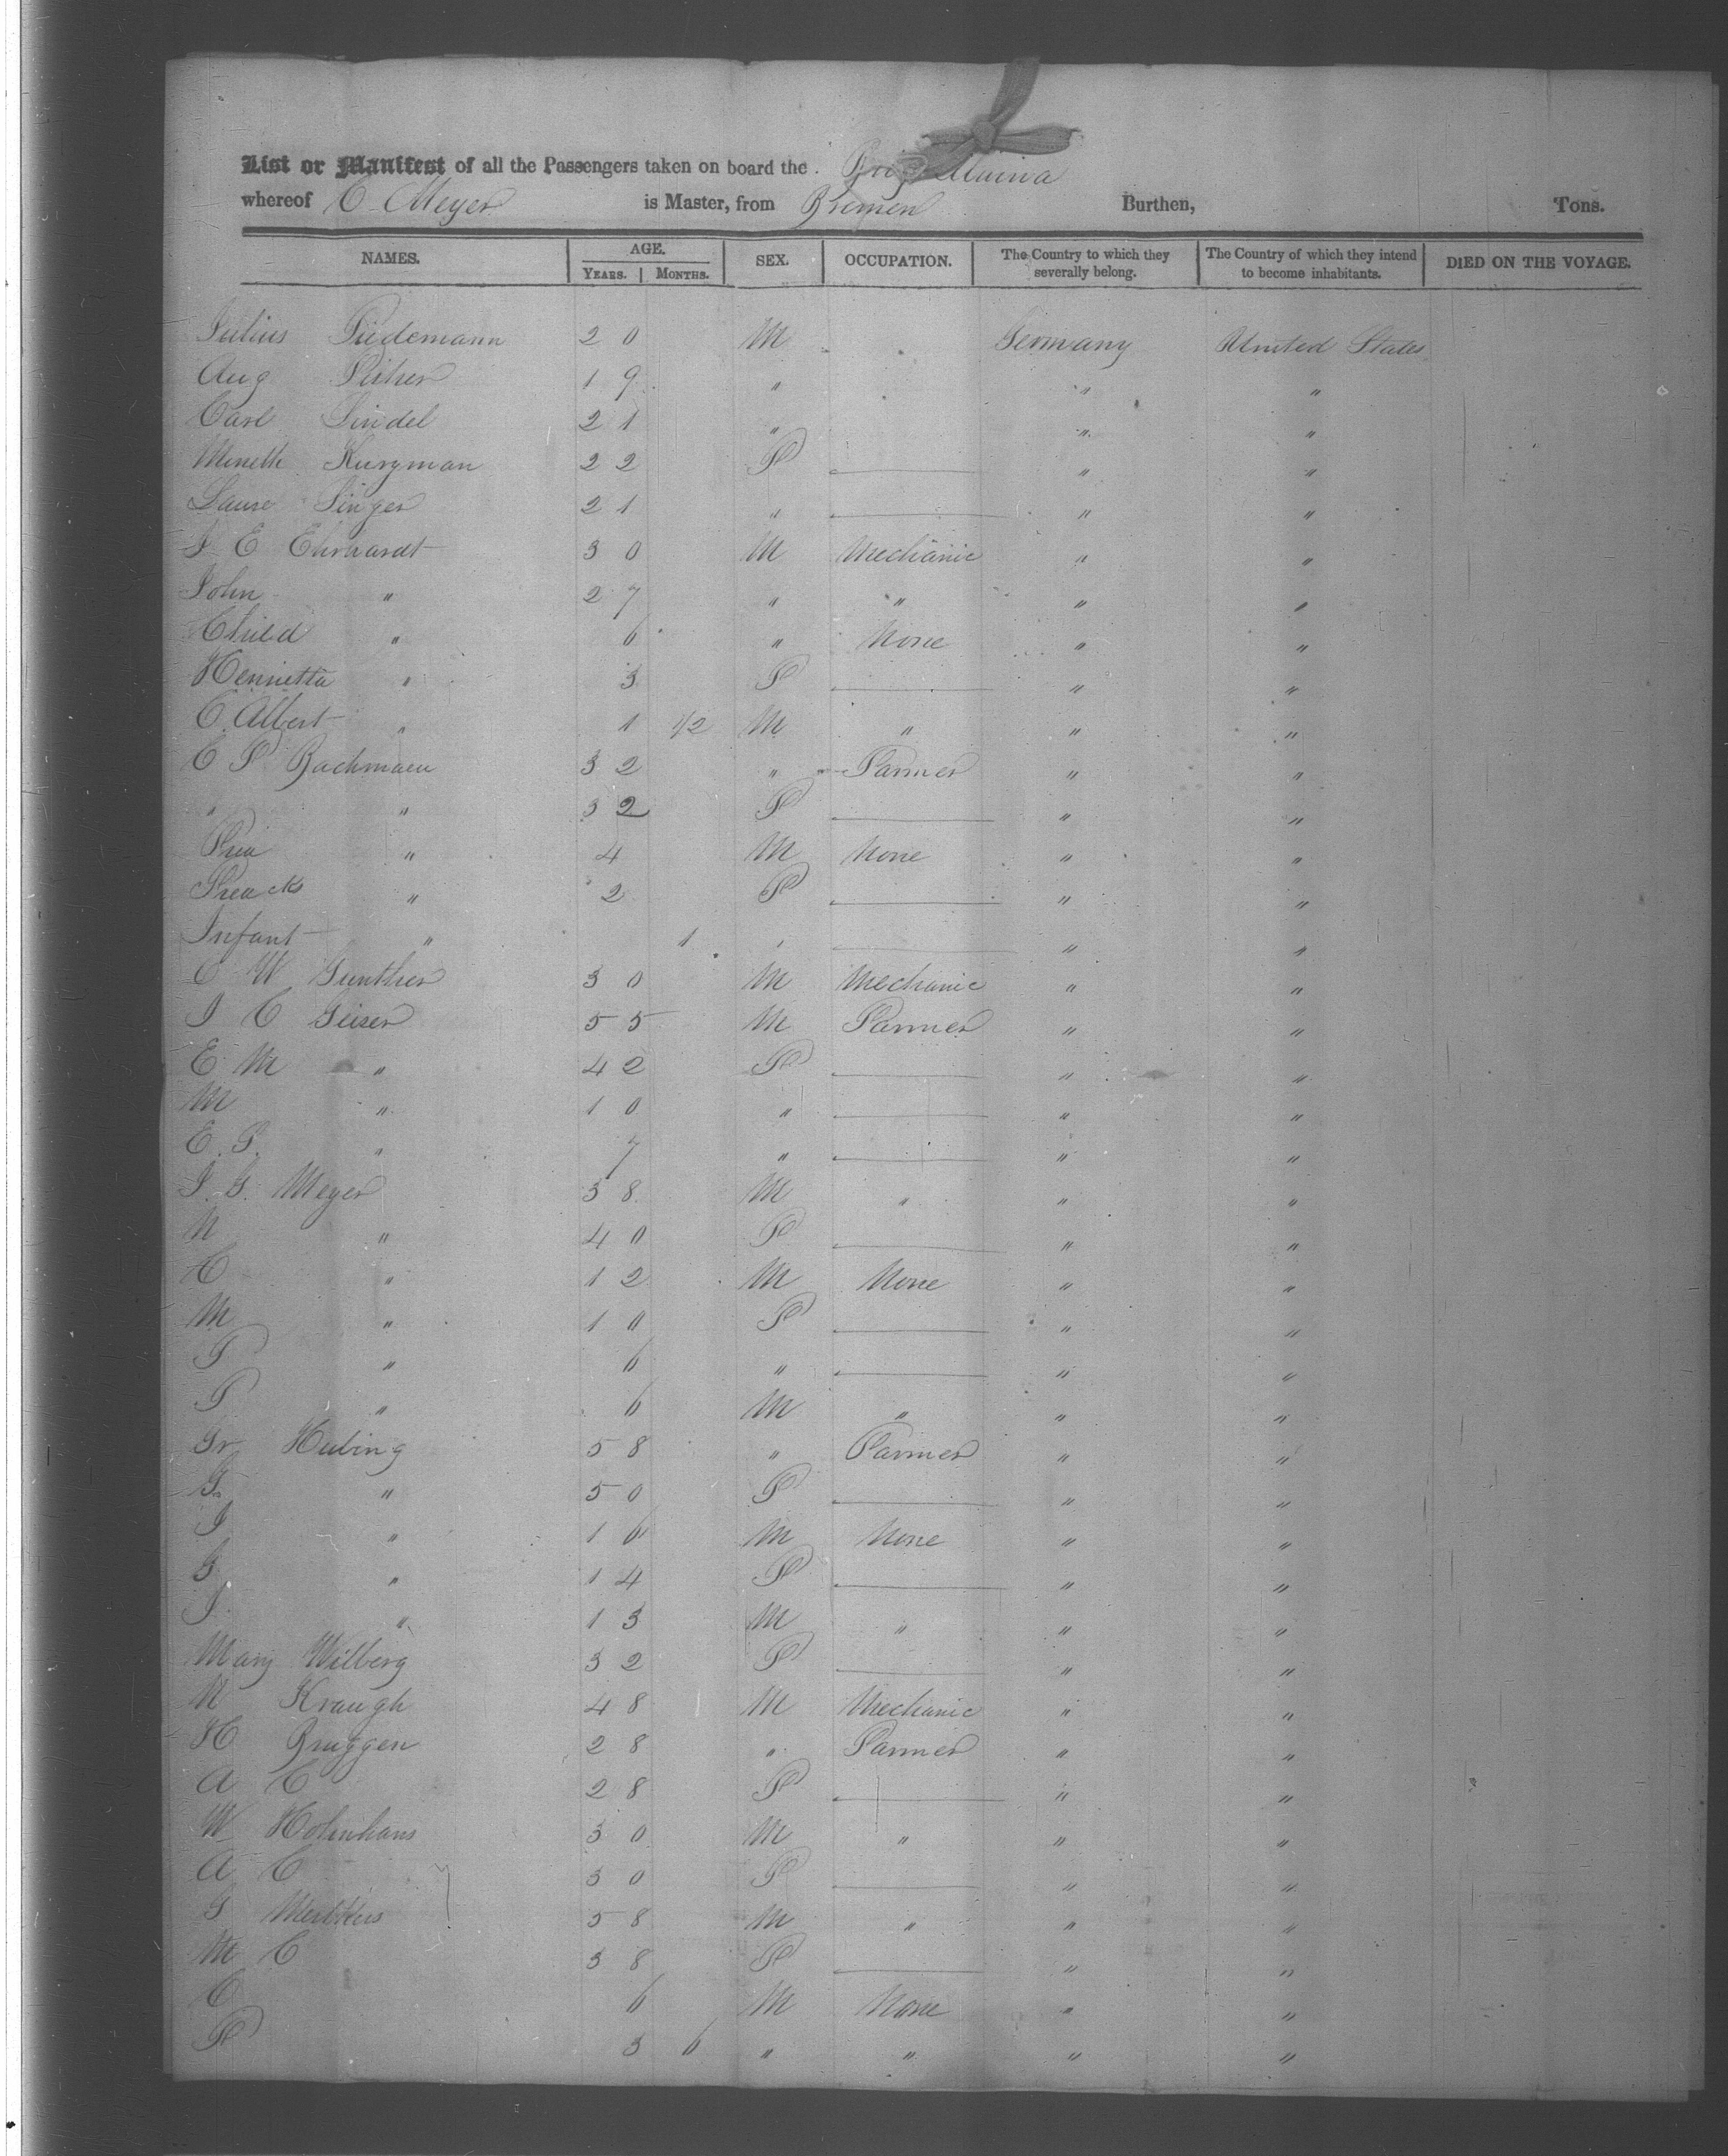 List or Manifest of all the Passengers taken on board the Brig
whereof C Meyer is Master, from Bremen Burthen, Tons.
NAMES. AGE. SEX. OCCUPATION. The Country to which they severally belong. The Country of which they intend to become inhabitants. DIED ON THE VOYAGE.
YEARS. MONTHS.
Julius 20 M Germany United States
Aug 19 " " "
Carl 21 " " "
Kurzman 22 F " "
Singer 21 " " "
J E Ehrhardt 30 M Mechanic " "
John " 27 " " " "
Child " 6 " None " "
Henrietta " 3 F " "
C. Albert " 1 1/2 M " " "
C F Bachmann 32 " Farmer " "
" " 32 F " "
" 4 M None " "
" 2 F " "
Infant " 1 " " "
C W Gunther 30 M Mechanic " "
J C Geiser 55 M Farmer " "
E M " 42 F " "
M " 10 " " "
E. F. " 7 " " "
J. G. Meyer 38 M " " "
N " 40 F " "
C " 12 M None " "
M " 10 F " "
" 6 " " "
" 6 M " " "
Fr Hubing 58 " Farmer " "
G " 50 F " "
J " 16 M None " "
G " 14 F " "
J. " 13 M " " "
Mary Wilberg 32 F " "
N Kraugh 48 M Mechanic " "
H Bruggen 28 " Farmer " "
A C 28 F " "
W 30 M " " "
A C 30 F " "
58 M " " "
M C 38 F " "
C 6 M None " "
F 3 6 " " " "